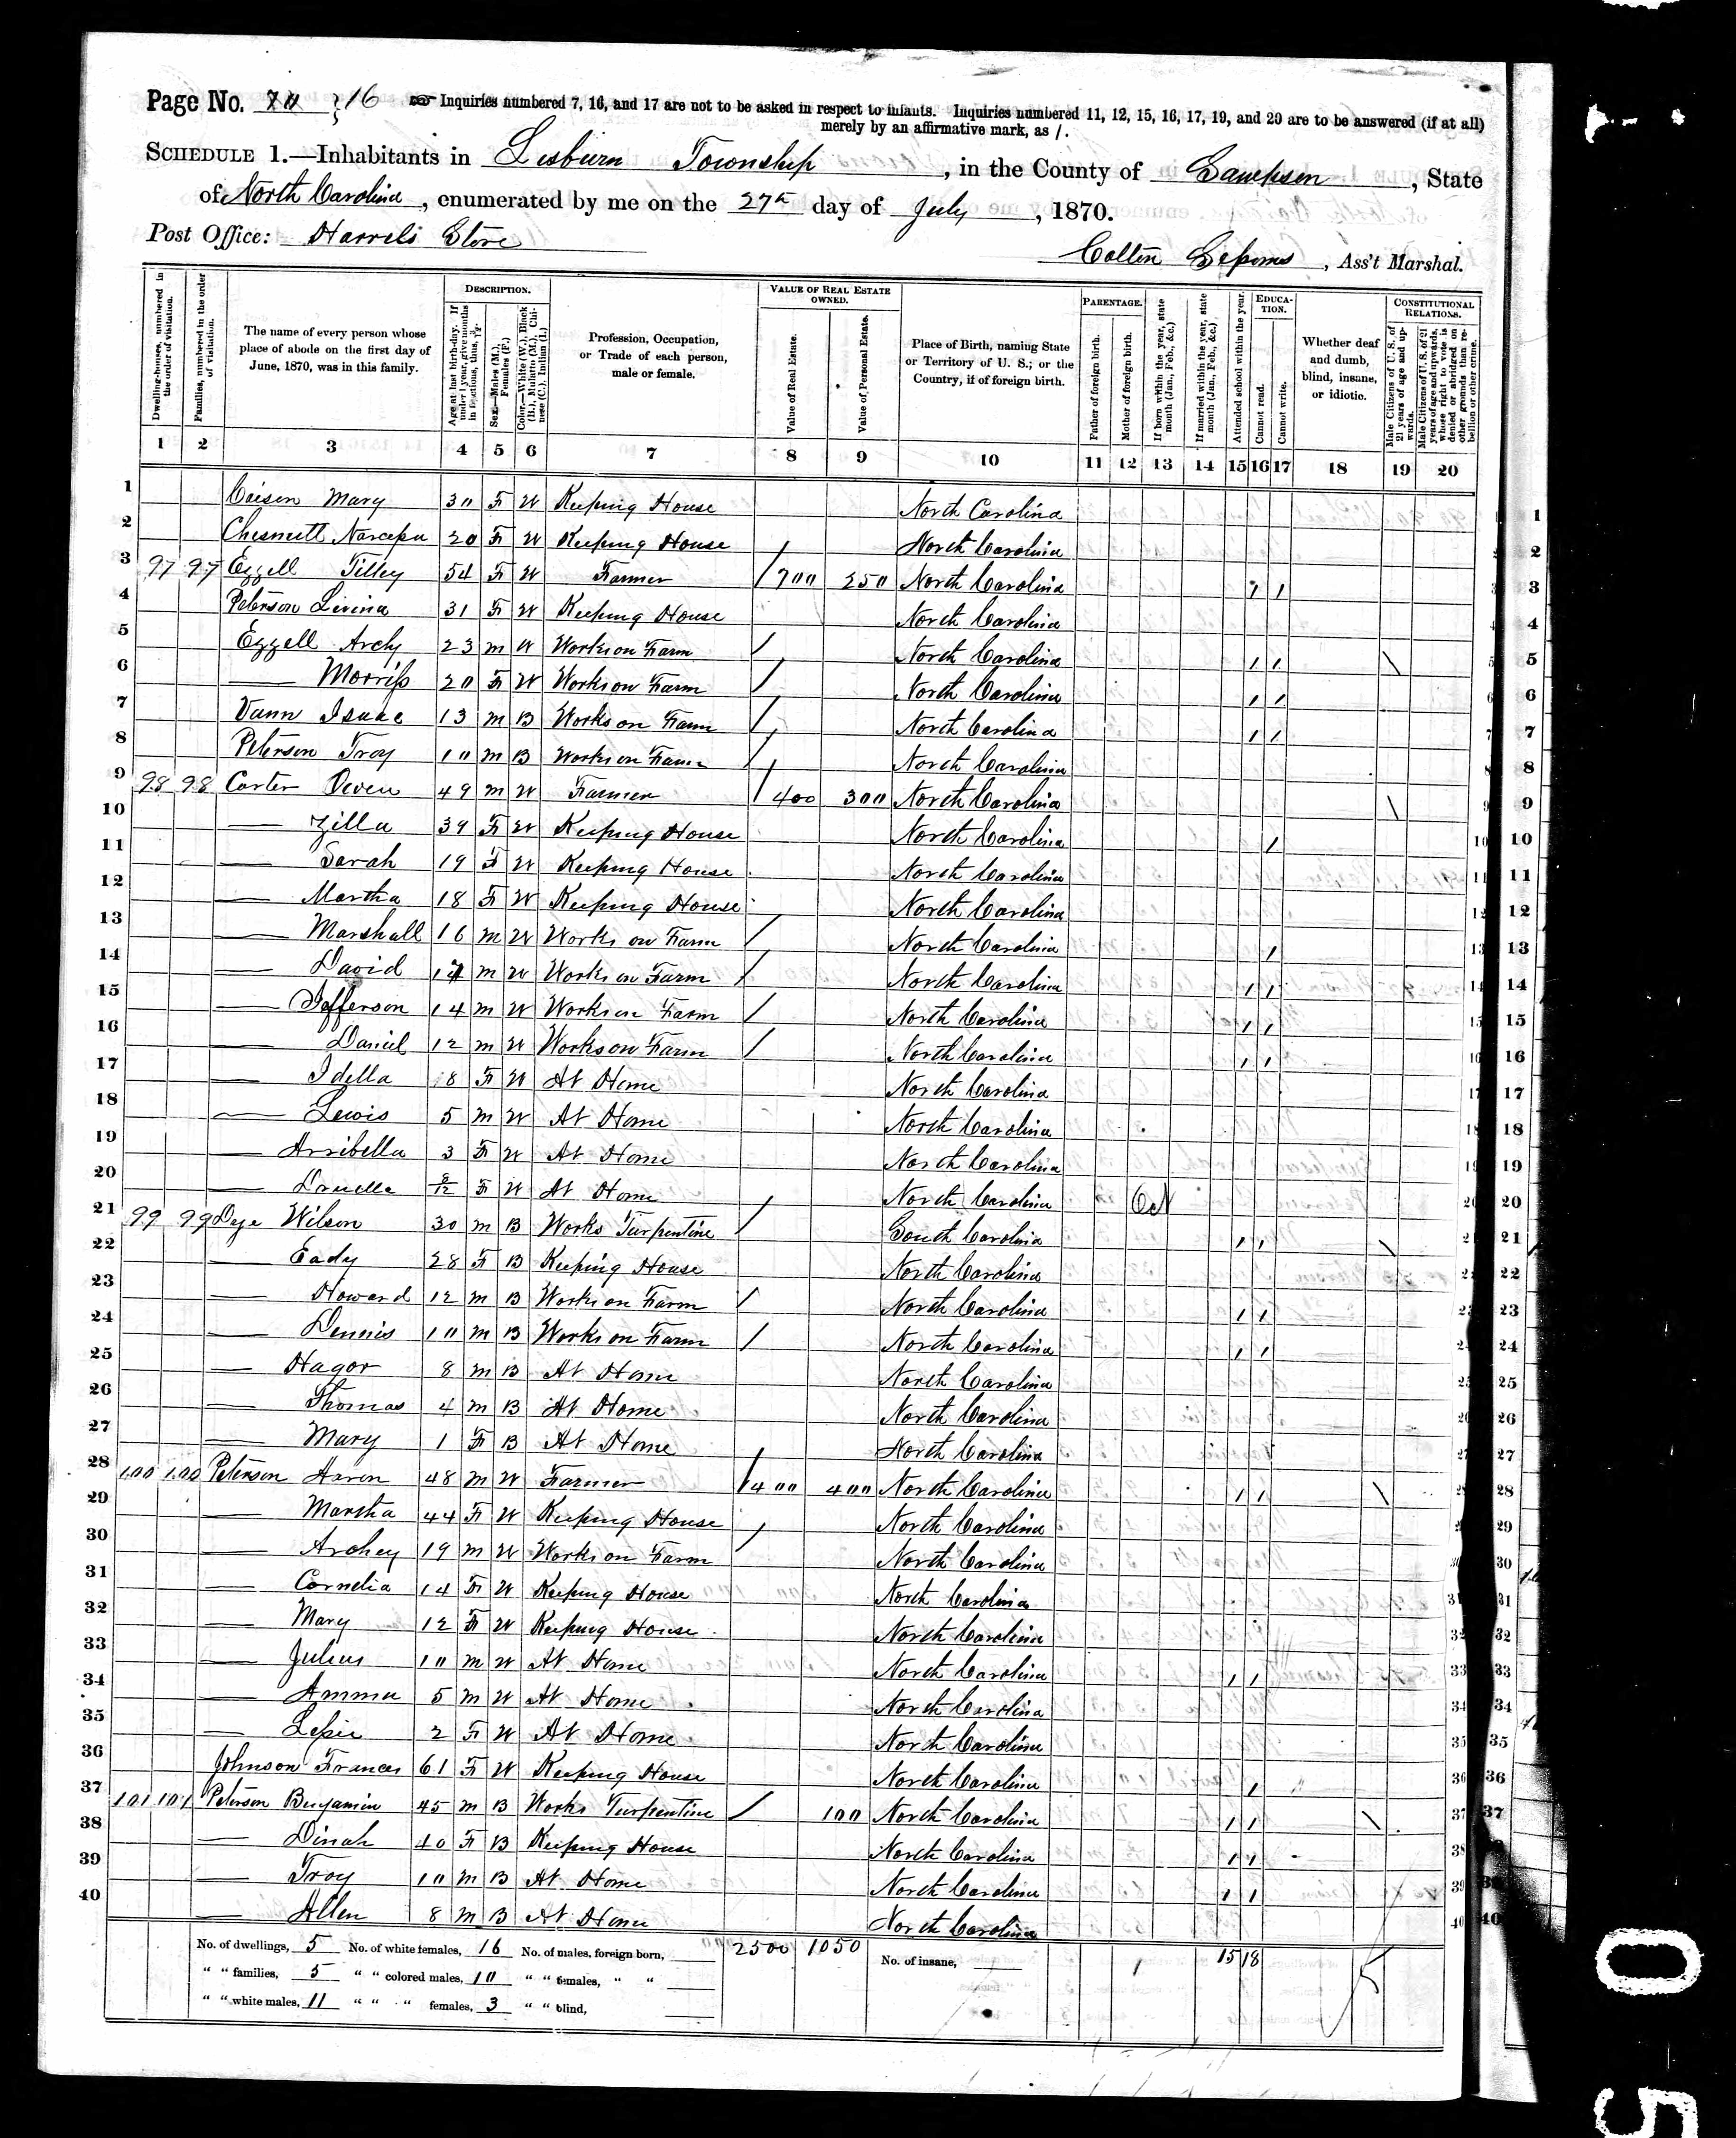 Page No. 16 Inquiries numbered 7, 16, and 17 are not to be asked in respect to infants. Inquiries numbered 11, 12, 15, 16, 17, 19, and 20 are to be answered (if at all)
merely by an affirmative mark, as /.
SCHEDULE 1.—Inhabitants in Lisburn Township, in the County of Sampson, State
of North Carolina, enumerated by me on the 27th day of July, 1870.
Post Office: Harrels Store
Ass't Marshal.
Dwelling-houses, numbered in the order of visitation.
Families, numbered in the order of visitation.
The name of every person whose place of abode on the first day of June, 1870, was in this family.
DESCRIPTION.
Age at last birth-day. If under 1 year, give months in fractions, thus, 3/12.
Sex.—Males (M.), Females (F.)
Color.—White (W.), Black (B.), Mulatto (M.), Chinese (C.), Indian (I.)
Profession, Occupation, or Trade of each person, male or female.
VALUE OF REAL ESTATE OWNED.
Value of Real Estate.
Value of Personal Estate.
Place of Birth, naming State or Territory of U. S.; or the Country, if of foreign birth.
PARENTAGE.
Father of foreign birth.
Mother of foreign birth.
If born within the year, state month (Jan., Feb., &c.)
If married within the year, state month (Jan., Feb., &c.)
EDUCATION.
Attended school within the year.
Cannot read.
Cannot write.
Whether deaf and dumb, blind, insane, or idiotic.
CONSTITUTIONAL RELATIONS.
Male Citizens of U. S. of 21 years of age and upwards.
Male Citizens of U. S. of 21 years of age and upwards, whose right to vote is denied or abridged on other grounds than rebellion or other crime.
1 2 3 4 5 6 7 8 9 10 11 12 13 14 15 16 17 18 19 20
1 Mary 30 F W Keeping House North Carolina 1
2 Chesnutt 20 F W Keeping House North Carolina 2
3 97 97 Ezzell Tilley 54 F W Farmer / 700 250 North Carolina / / 3
4 Peterson Livina 31 F W Keeping House North Carolina 4
5 Ezzell Archy 23 m W Works on Farm / North Carolina / / \ 5
6 — 20 F W Works on Farm / North Carolina / / 6
7 Vann Isaac 13 m B Works on Farm / North Carolina / / 7
8 Peterson Troy 10 m B Works on Farm / North Carolina 8
9 98 98 Carter 49 m W Farmer / 400 300 North Carolina \ 9
10 — Zilla 39 F W Keeping House North Carolina / 10
11 — Sarah 19 F W Keeping House North Carolina 11
12 — Martha 18 F W Keeping House North Carolina 12
13 — Marshall 16 m W Works on Farm / North Carolina / 13
14 — David m W Works on Farm / North Carolina / / 14
15 — Jefferson 14 m W Works on Farm / North Carolina / / 15
16 — Daniel 12 m W Works on Farm / North Carolina / / 16
17 — Idella 8 F W At Home North Carolina 17
18 — Lewis 5 m W At Home North Carolina 18
19 — Arribella 3 F W At Home North Carolina 19
20 — Louella 8/12 F W At Home North Carolina Oct 20
21 99 99 Dye Wilson 30 m B Works Turpentine / South Carolina / / \ 21
22 — Eady 28 F B Keeping House North Carolina 22
23 — Howard 12 m B Works on Farm / North Carolina / / 23
24 — Dennis 10 m B Works on Farm / North Carolina / / 24
25 — Hagor 8 m B At Home North Carolina 25
26 — Thomas 4 m B At Home North Carolina 26
27 — Mary 1 F B At Home North Carolina 27
28 100 100 Peterson Aaron 48 m W Farmer / 400 North Carolina / / \ 28
29 — Martha 44 F W Keeping House North Carolina 29
30 — Archey 19 m W Works on Farm / North Carolina 30
31 — Cornelia 14 F W Keeping House North Carolina 31
32 — Mary 12 F W Keeping House North Carolina 32
33 — Julius 10 m W At Home North Carolina / / 33
34 — Amma 5 m W At Home North Carolina 34
35 — 2 F W At Home North Carolina 35
36 Johnson Frances 61 F W Keeping House North Carolina / 36
37 101 101 Peterson Benjamin 45 m B Works Turpentine / 100 North Carolina / / \ 37
38 — Dinah 40 F B Keeping House North Carolina / / 38
39 — Troy 10 m B At Home North Carolina / / 39
40 — Allen 8 m B At Home North Carolina 40
No. of dwellings, 5 No. of white females, 16 No. of males, foreign born, 2500 1050 No. of insane, 1 15 18
" " families, 5 " " colored males, 10 " " females, " "
" " white males, 11 " " " females, 3 " " blind,